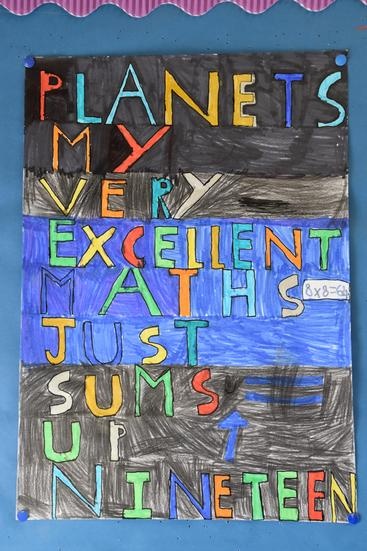 PLANETS
MY
VERY
EXCELLENT
MATHS 8x8=64
JUST
SUMS
UP
NINETEEN